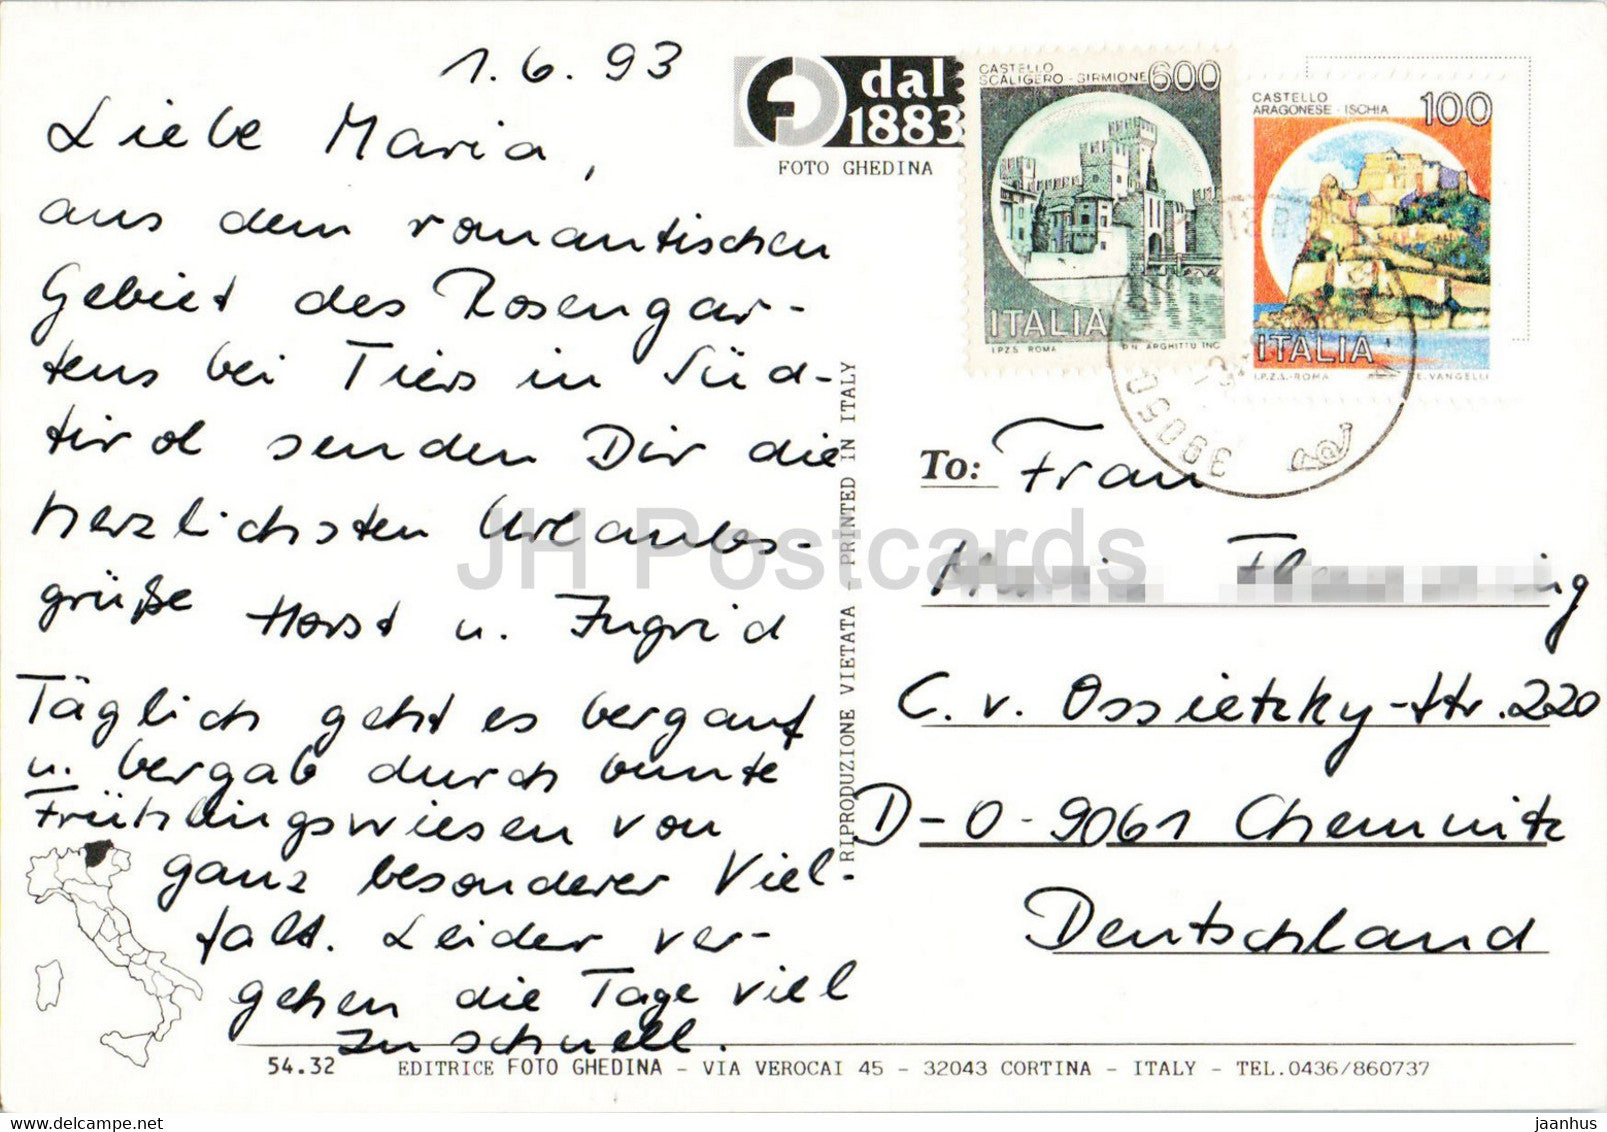 1.6.93
Liebe Maria,
aus dem romantischen
Gebiet des Rosengar-
tens bei Tiers in Süd-
tirol senden Dir die
herzlichsten Urlaubs-
grüße Horst u. Ingrid
Täglich geht es bergauf
u. bergab durch bunte
Frühlingswiesen von
ganz besonderer Viel-
falt. Leider ver-
gehen die Tage viel
zu schnell.
dal
1883
FOTO GHEDINA
CASTELLO
SCALIGERO - SIRMIONE 600
ITALIA
I.P.Z.S. ROMA D.N. ARGHITTU INC.
CASTELLO
ARAGONESE - ISCHIA 100
ITALIA
I.P.Z.S.-ROMA E. VANGELLI
39050
RIPRODUZIONE VIETATA - PRINTED IN ITALY
To: Frau
C. v. Ossietzky-Str. 220
D-O-9061 Chemnitz
Deutschland
54.32 EDITRICE FOTO GHEDINA - VIA VEROCAI 45 - 32043 CORTINA - ITALY - TEL.0436/860737
JH Postcards
delcampe.net
jaanhus